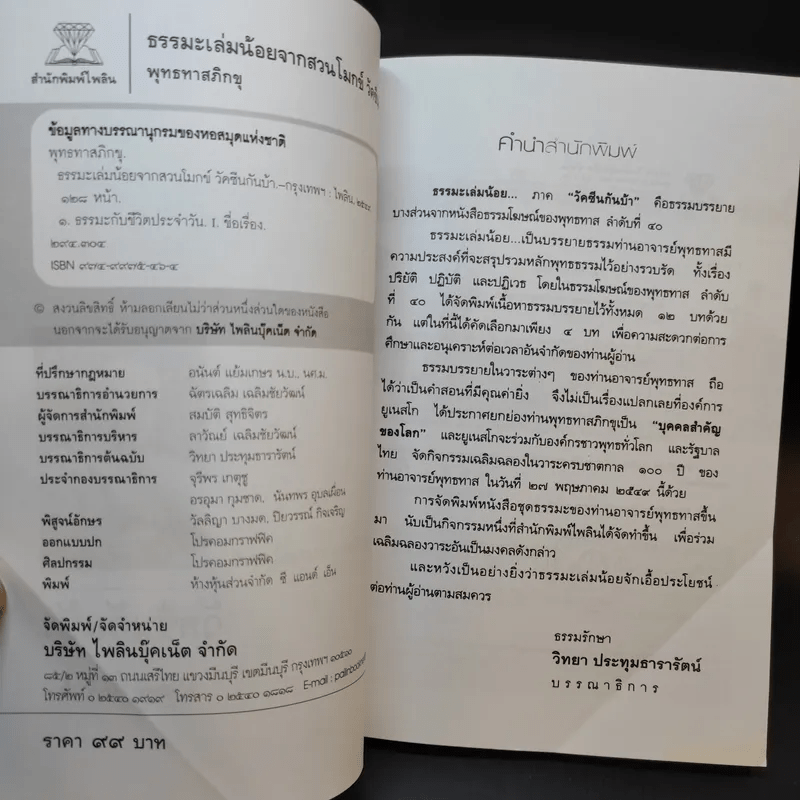 สำนักพิมพ์ไพลิน
ธรรมะเล่มน้อยจากสวนโมกข์
พุทธทาสภิกขุ
ข้อมูลทางบรรณานุกรมของหอสมุดแห่งชาติ
พุทธทาสภิกขุ.
ธรรมะเล่มน้อยจากสวนโมกข์ วัคซีนกันบ้า.--กรุงเทพฯ : ไพลิน,
๑๒๘ หน้า.
๑. ธรรมะกับชีวิตประจำวัน. I. ชื่อเรื่อง.
๒๙๔.๓๐๔
ISBN ๙๗๔-๙๙๗๕-๔๖-๔
© สงวนลิขสิทธิ์ ห้ามลอกเลียนไม่ว่าส่วนหนึ่งส่วนใดของหนังสือ
นอกจากจะได้รับอนุญาตจาก บริษัท ไพลินบุ๊คเน็ต จำกัด
ที่ปรึกษากฎหมาย อนันต์ แย้มเกษร น.บ., นศ.ม.
บรรณาธิการอำนวยการ ฉัตรเฉลิม เฉลิมชัยวัฒน์
ผู้จัดการสำนักพิมพ์ สมบัติ สุทธิจิตร
บรรณาธิการบริหาร ลาวัณย์ เฉลิมชัยวัฒน์
บรรณาธิการต้นฉบับ วิทยา ประทุมธารารัตน์
ประจำกองบรรณาธิการ จุรีพร เกตุชู
อรอุมา กุมชาด, นันทพร อุบลเผื่อน
พิสูจน์อักษร วัลลิญา บางมด, ปิยวรรณ์ กิจเจริญ
ออกแบบปก โปรคอมกราฟฟิค
ศิลปกรรม โปรคอมกราฟฟิค
พิมพ์ ห้างหุ้นส่วนจำกัด ซี แอนด์ เอ็น
จัดพิมพ์/จัดจำหน่าย
บริษัท ไพลินบุ๊คเน็ต จำกัด
๘๕/๒ หมู่ที่ ๑๓ ถนนเสรีไทย แขวงมีนบุรี เขตมีนบุรี กรุงเทพฯ ๑๐๕๑๐
โทรศัพท์ ๐ ๒๕๔๐ ๑๙๑๙ โทรสาร ๐ ๒๕๔๐ ๑๘๑๘ E-mail :
ราคา ๙๙ บาท
คำนำสำนักพิมพ์
ธรรมะเล่มน้อย... ภาค “วัคซีนกันบ้า” คือธรรมบรรยาย
บางส่วนจากหนังสือธรรมโฆษณ์ของพุทธทาส ลำดับที่ ๔๐
ธรรมะเล่มน้อย...เป็นบรรยายธรรมท่านอาจารย์พุทธทาสมี
ความประสงค์ที่จะสรุปรวมหลักพุทธธรรมไว้อย่างรวบรัด ทั้งเรื่อง
ปริยัติ ปฏิบัติ และปฏิเวธ โดยในธรรมโฆษณ์ของพุทธทาส ลำดับ
ที่ ๔๐ ได้จัดพิมพ์เนื้อหาธรรมบรรยายไว้ทั้งหมด ๑๒ บทด้วย
กัน แต่ในที่นี้ได้คัดเลือกมาเพียง ๔ บท เพื่อความสะดวกต่อการ
ศึกษาและอนุเคราะห์ต่อเวลาอันจำกัดของท่านผู้อ่าน
ธรรมบรรยายในวาระต่างๆ ของท่านอาจารย์พุทธทาส ถือ
ได้ว่าเป็นคำสอนที่มีคุณค่ายิ่ง จึงไม่เป็นเรื่องแปลกเลยที่องค์การ
ยูเนสโก ได้ประกาศยกย่องท่านพุทธทาสภิกขุเป็น “บุคคลสำคัญ
ของโลก” และยูเนสโกจะร่วมกับองค์กรชาวพุทธทั่วโลก และรัฐบาล
ไทย จัดกิจกรรมเฉลิมฉลองในวาระครบชาตกาล ๑๐๐ ปี ของ
ท่านอาจารย์พุทธทาส ในวันที่ ๒๗ พฤษภาคม ๒๕๔๙ นี้ด้วย
การจัดพิมพ์หนังสือชุดธรรมะของท่านอาจารย์พุทธทาสขึ้น
มา นับเป็นกิจกรรมหนึ่งที่สำนักพิมพ์ไพลินได้จัดทำขึ้น เพื่อร่วม
เฉลิมฉลองวาระอันเป็นมงคลดังกล่าว
และหวังเป็นอย่างยิ่งว่าธรรมะเล่มน้อยจักเอื้อประโยชน์
ต่อท่านผู้อ่านตามสมควร
ธรรมรักษา
วิทยา ประทุมธารารัตน์
บรรณาธิการ